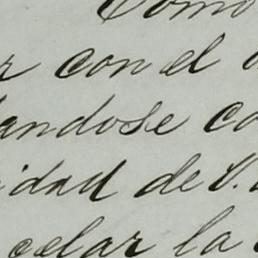 Como
r con el
andose co
idad de S.
celar la